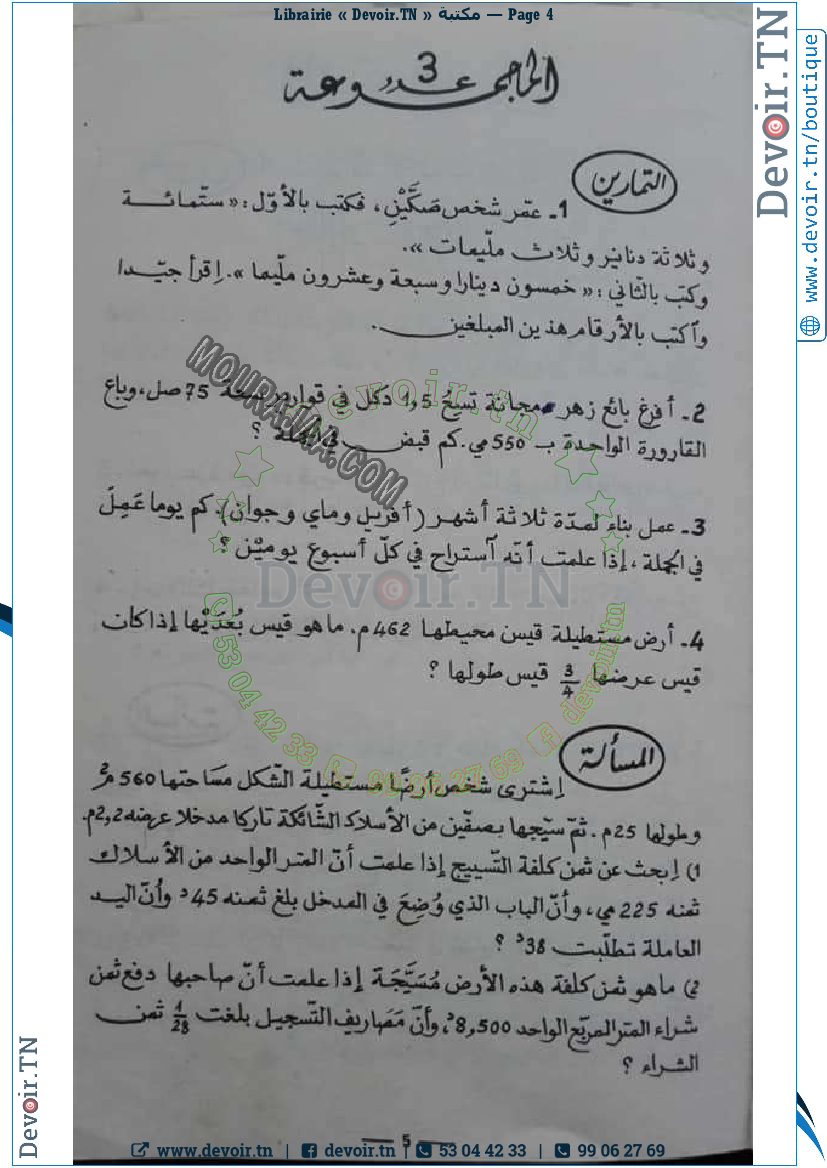 Librairie « Devoir.TN » مكتبة — Page 4
Devoir.TN
www.devoir.tn/boutique
المجموعة عدد 3
التمارين
1ـ عمّر شخص صَكَّيْنِ، فكتب بالأوّل : « ستّمائة
وثلاثة دنانير وثلاث ملّيمات ».
وكتب بالثّاني : « خمسون دينارا وسبعة وعشرون ملّيما ». اِقرأ جيّدا
وآكتب بالأرقام هذين المبلغين.
2ـ أفرغ بائع زهر مجانة تسَعُ 1,5 دكل في قوارير سعة 75 صل، وباع
القارورة الواحدة بـ 550 مي. كم قبض في الجملة ؟
MOURAJAA.COM
devoir.tn
3ـ عمل بناء لمدّة ثلاثة أشهر (أفريل وماي وجوان). كم يوما عَمِلَ
في الجملة، إذا علمت أنّه آستراح في كلّ أسبوع يوميْن ؟
Devoir.TN
4ـ أرض مستطيلة قيس محيطها 462 م. ما هو قيس بُعْدَيْها إذا كان
قيس عرضها 3/4 قيس طولها ؟
53 04 42 33 99 06 27 69 devoir.tn
المسألة
اِشترى شخص أرضًا مستطيلة الشّكل مسَاحتها 560 م²
وطولها 25 م. ثمّ سيّجها بصفّين من الأسلاك الشّائكة تاركا مدخلا عرضه 2,2 م.
1) اِبحث عن ثمن كلفة التّسييج إذا علمت أنّ المتر الواحد من الأسلاك
ثمنه 225 مي، وأنّ الباب الذي وُضِعَ في المدخل بلغ ثمنه 45 د وأنّ اليد
العاملة تطلّبت 38 د ؟
2) ما هو ثمن كلفة هذه الأرض مُسَيَّجَة إذا علمت أنّ صاحبها دفع ثمن
شراء المتر المربّع الواحد 8,500 د، وأنّ مَصَاريف التّسجيل بلغت 1/28 ثمن
الشراء ؟
5
Devoir.TN
www.devoir.tn | devoir.tn | 53 04 42 33 | 99 06 27 69